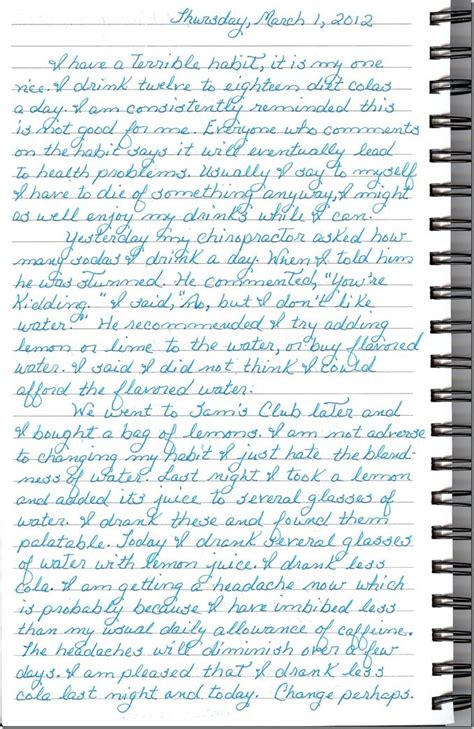 Thursday, March 1, 2012
I have a terrible habit, it is my one
vice. I drink twelve to eighteen diet colas
a day. I am consistently reminded this
is not good for me. Everyone who comments
on the habit says it will eventually lead
to health problems. Usually I say to myself
I have to die of something anyway, I might
as well enjoy my drinks while I can.
Yesterday my chiropractor asked how
many sodas I drink a day. When I told him
he was stunned. He commented, "You're
Kidding." I said, "No, but I don't like
water." He recommended I try adding
lemon or lime to the water, or buy flavored
water. I said I did not think I could
afford the flavored water.
We went to Sam's Club later and
I bought a bag of lemons. I am not adverse
to changing my habit I just hate the bland-
ness of water. Last night I took a lemon
and added its juice to several glasses of
water. I drank these and found them
palatable. Today I drank several glasses
of water with lemon juice. I drank less
cola. I am getting a headache now which
is probably because I have imbibed less
than my usual daily allowance of caffeine.
The headaches will diminish over a few
days. I am pleased that I drank less
cola last night and today. Change perhaps.